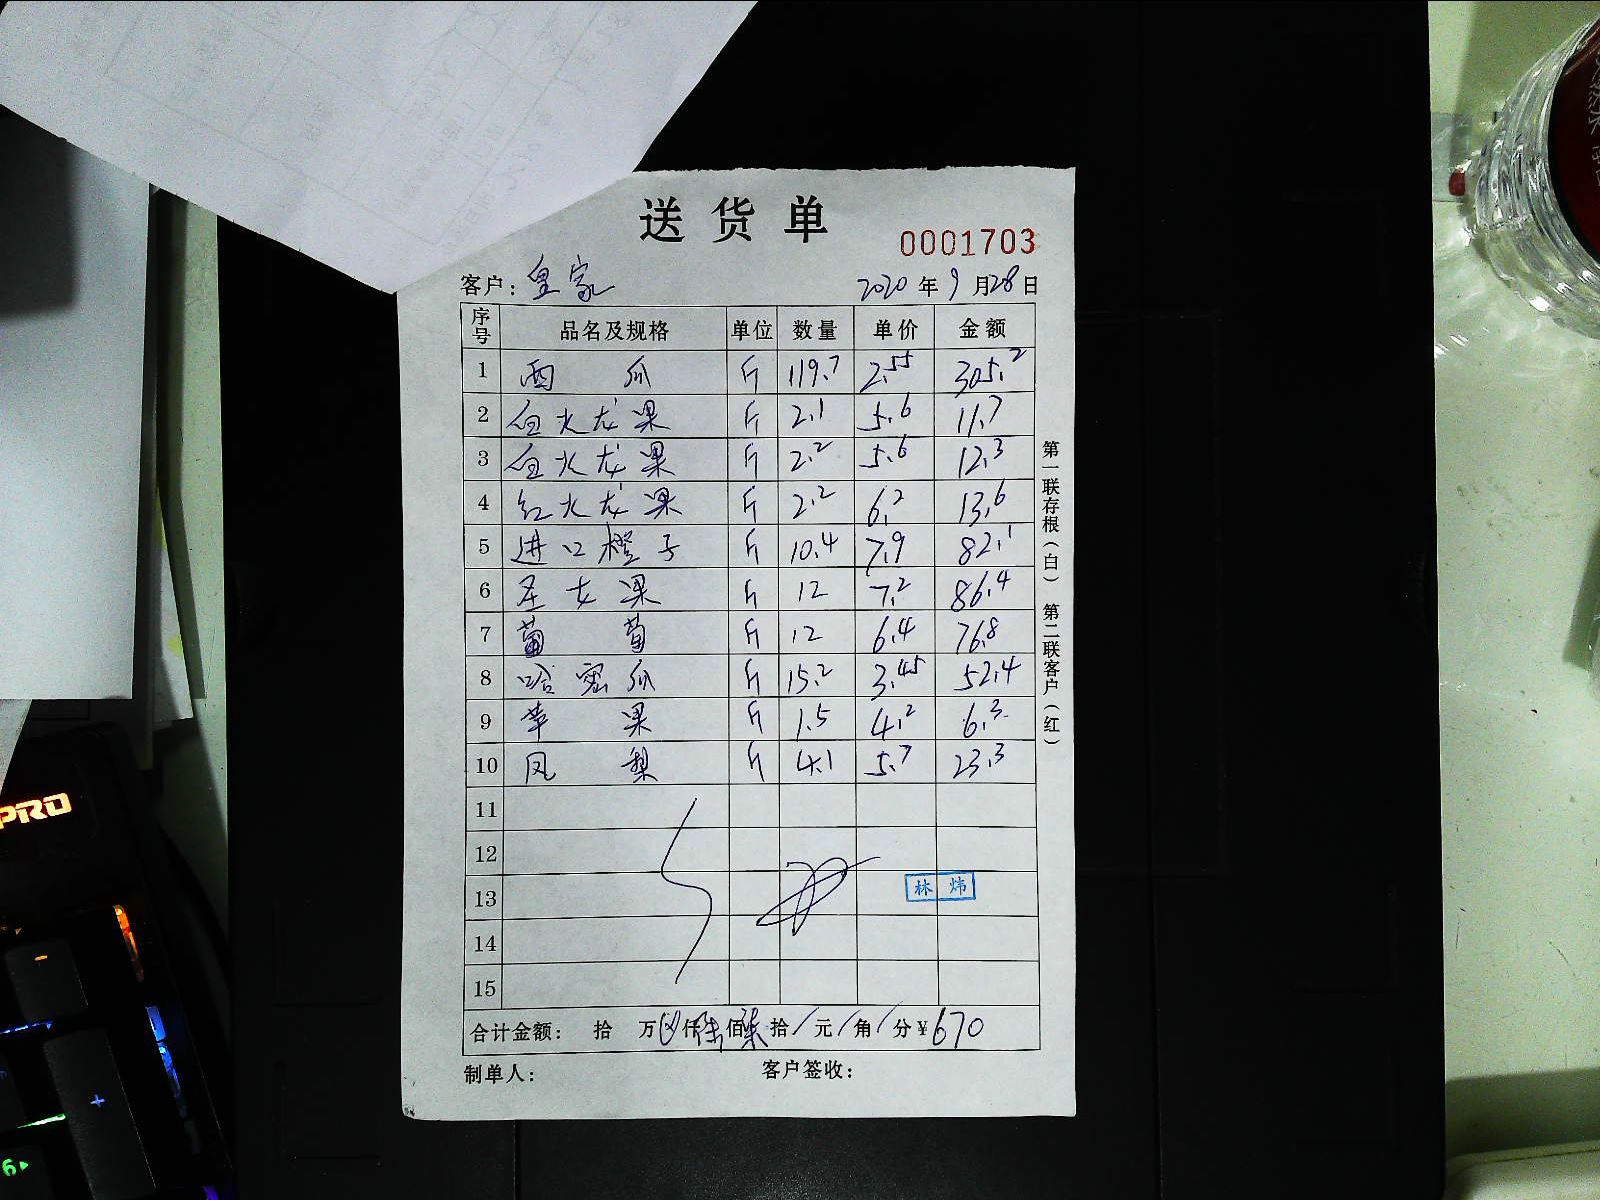 送货单
0001703
客户：皇家 2020年9月28日
序号 品名及规格 单位 数量 单价 金额
1 西瓜 斤 119.7 2.55 305.2
2 白火龙果 斤 2.1 5.6 11.7
3 白火龙果 斤 2.2 5.6 12.3
4 红火龙果 斤 2.2 6.2 13.6
5 进口橙子 斤 10.4 7.9 82.1
6 圣女果 斤 12 7.2 86.4
7 葡萄 斤 12 6.4 76.8
8 哈密瓜 斤 15.2 3.45 52.4
9 苹果 斤 1.5 4.2 6.3
10 凤梨 斤 4.1 5.7 23.3
11
12
13 林炜
14
15
合计金额： 拾 万 仟陆佰柒拾/元/角/分¥670
制单人： 客户签收：
第一联存根（白） 第二联客户（红）
PRO
6